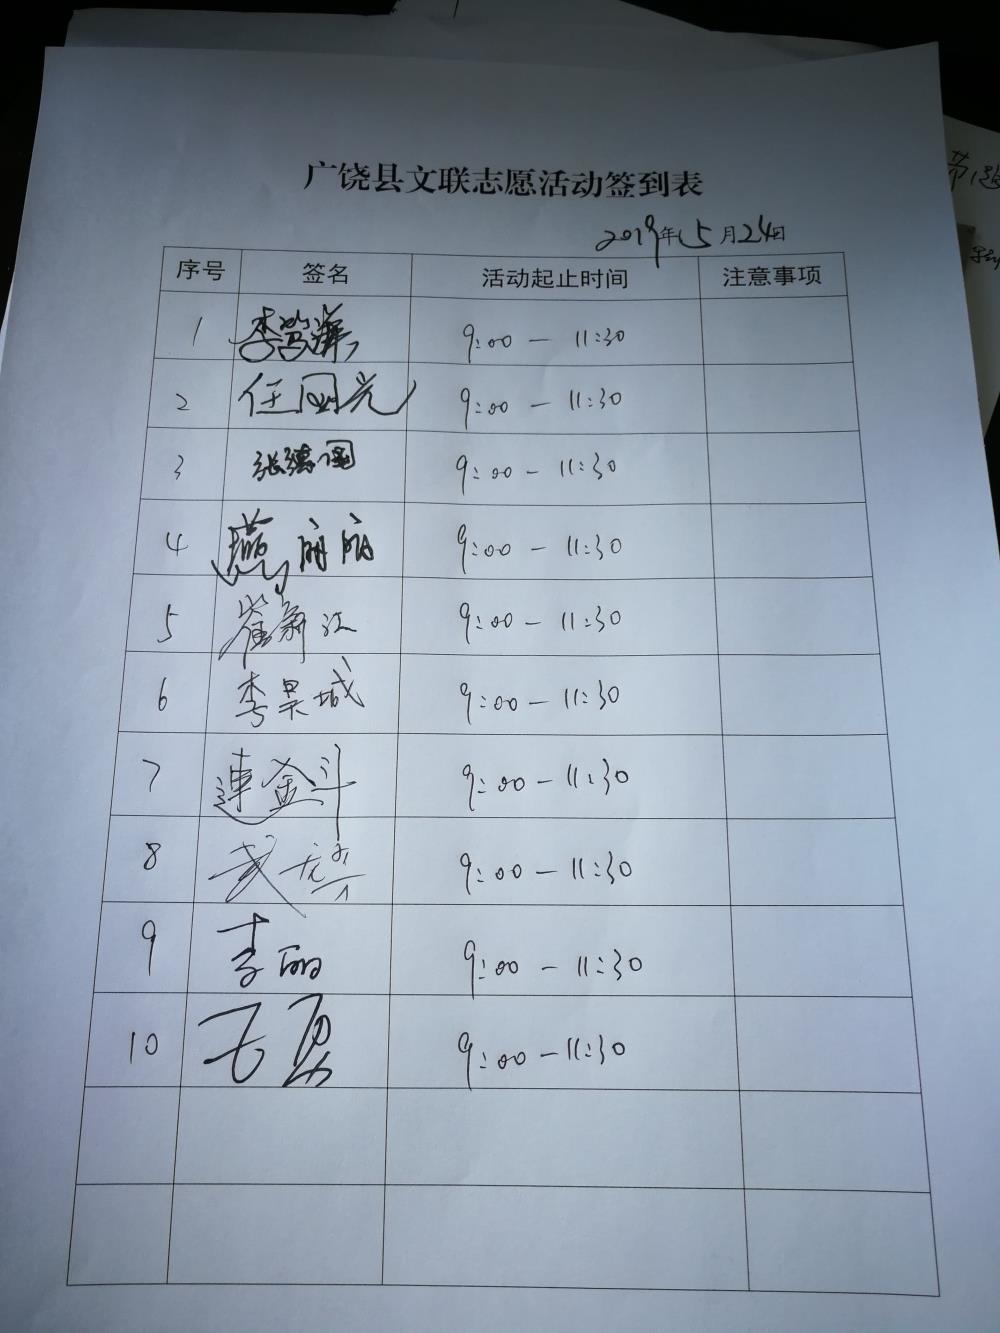 广饶县文联志愿活动签到表
2019年5月24日
序号 签名 活动起止时间 注意事项
1 李笃 9:00 — 11:30
2 任国光 9:00 — 11:30
3 张德国 9:00 — 11:30
4 燕丽丽 9:00 — 11:30
5 崔新江 9:00 — 11:30
6 李昊城 9:00 — 11:30
7 連金斗 9:00 — 11:30
8 武 9:00 — 11:30
9 李丽 9:00 — 11:30
10 9:00 — 11:30